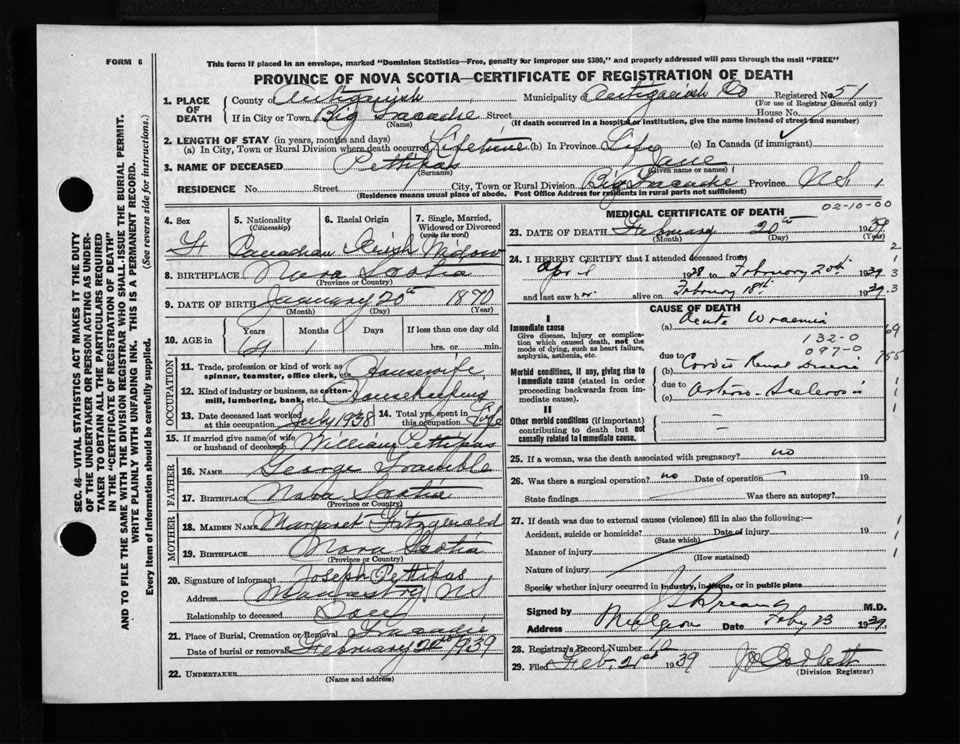 FORM 6
This form if placed in an envelope, marked "Dominion Statistics—Free, penalty for improper use $300," and properly addressed will pass through the mail "FREE"
PROVINCE OF NOVA SCOTIA—CERTIFICATE OF REGISTRATION OF DEATH
1. PLACE OF DEATH County of Antigonish Municipality of Antigonish Co Registered No. 51
(For use of Registrar General only)
If in City or Town Big Tracadie Street House No.
(Name) (If death occurred in a hospital or institution, give the name instead of street and number)
2. LENGTH OF STAY (in years, months and days)
(a) In City, Town or Rural Division where death occurred Lifetime (b) In Province Life (c) In Canada (if immigrant)
3. NAME OF DECEASED Pettipas Jane
(Surname) (Given name or names)
RESIDENCE No. Street City, Town or Rural Division Big Tracadie Province N.S.
(Residence means usual place of abode. Post Office Address for residents in rural parts not sufficient)
4. Sex 5. Nationality (Citizenship) 6. Racial Origin 7. Single, Married, Widowed or Divorced (write the word)
F Canadian Irish Widow
8. BIRTHPLACE Nova Scotia
(Province or Country)
9. DATE OF BIRTH January 20th 1870
(Month) (Day) (Year)
10. AGE in Years Months Days If less than one day old
69 1 hrs. or min.
OCCUPATION
11. Trade, profession or kind of work as spinner, teamster, office clerk, etc. Housewife
12. Kind of industry or business, as cotton-mill, lumbering, bank, etc. Housekeeping
13. Date deceased last worked at this occupation July 1938 14. Total yrs. spent in this occupation Life
15. If married give name of wife or husband of deceased William Pettipas
FATHER
16. NAME George
17. BIRTHPLACE Nova Scotia
(Province or Country)
MOTHER
18. MAIDEN NAME Margaret Fitzgerald
19. BIRTHPLACE Nova Scotia
(Province or Country)
20. Signature of informant Joseph Pettipas
Address Monastery NS
Relationship to deceased Son
21. Place of Burial, Cremation or Removal Tracadie
Date of burial or removal February 20th 1939
22. UNDERTAKER
(Name and address)
MEDICAL CERTIFICATE OF DEATH
02-10-00
23. DATE OF DEATH February 20th 1939
(Month) (Day) (Year)
24. I HEREBY CERTIFY that I attended deceased from
April 1938 to February 20th 1939
and last saw her alive on February 18th 1939
CAUSE OF DEATH
I
Immediate cause
Give disease, injury or complication which caused death, not the mode of dying, such as heart failure, asphyxia, asthenia, etc.
(a) Acute Uraemia
132-0
097-0
due to
(b) Cardio Renal Disease
Morbid conditions, if any, giving rise to immediate cause (stated in order proceeding backwards from immediate cause).
due to
(c) Arterio-Sclerosis
II
Other morbid conditions (if important) contributing to death but not causally related to immediate cause.
25. If a woman, was the death associated with pregnancy? no
26. Was there a surgical operation? no Date of operation 19
State findings Was there an autopsy?
27. If death was due to external causes (violence) fill in also the following:—
Accident, suicide or homicide? Date of injury 19
(State which)
Manner of injury
(How sustained)
Nature of injury
Specify whether injury occurred in industry, in home, or in public place
Signed by M.D.
Address Mulgrave Date Feby 23 1939
28. Registrar's Record Number
29. Filed Feb. 21st 1939
(Division Registrar)
SEC. 46—VITAL STATISTICS ACT MAKES IT THE DUTY
OF THE UNDERTAKER OR PERSON ACTING AS UNDERTAKER TO OBTAIN ALL THE PARTICULARS REQUIRED
IN THE "CERTIFICATE OF REGISTRATION OF DEATH"
AND TO FILE THE SAME WITH THE DIVISION REGISTRAR WHO SHALL ISSUE THE BURIAL PERMIT.
WRITE PLAINLY WITH UNFADING INK. THIS IS A PERMANENT RECORD.
Every item of information should be carefully supplied. (See reverse side for instructions.)